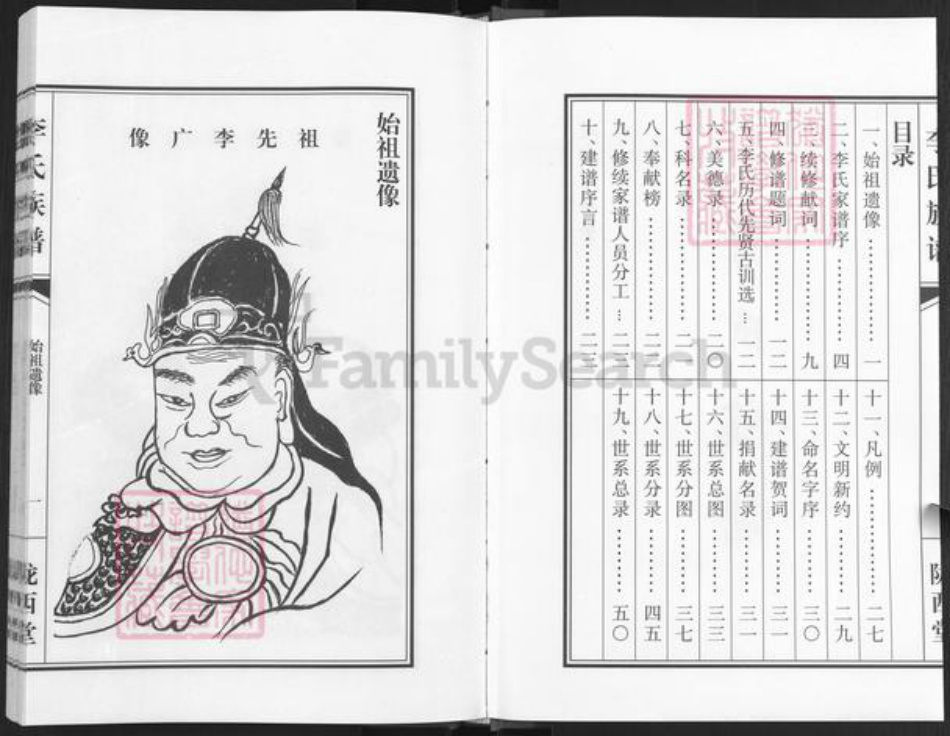 目录
一、始祖遗像…………一
二、李氏家谱序…………四
三、续修献词…………九
四、修谱题词…………一二
五、李氏历代先贤古训选…一二
六、美德录…………二〇
七、科名录…………二一
八、奉献榜…………二二
九、修续家谱人员分工…二三
十、建谱序言…………二三
十一、凡例…………二七
十二、文明新约…………二九
十三、命名字序…………三〇
十四、建谱贺词…………三一
十五、捐献名录…………三一
十六、世系总图…………三三
十七、世系分图…………三七
十八、世系分录…………四五
十九、世系总录…………五〇
始祖遗像
祖先李广像
李氏族谱
始祖遗像
一
陇西堂
FamilySearch